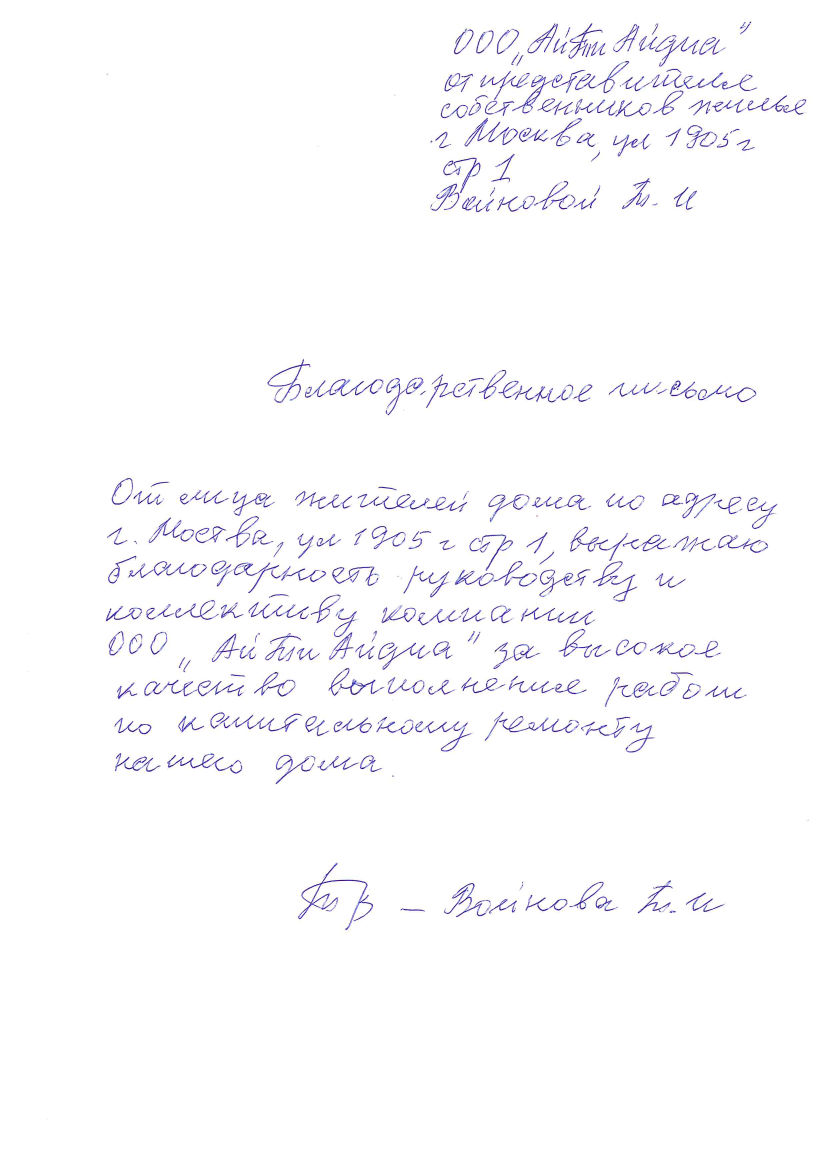 ООО „АйТи Айдиа"
от представителя
собственников жилья
г Москва, ул 1905 г
стр 1
Войновой Т. И
Благодарственное письмо
От лица жителей дома по адресу
г. Моства, ул 1905 г стр 1, выражаю
благодарность руководству и
коллективу компании
ООО „АйТи Айдиа" за высокое
качество выполнение работ
по капитальному ремонту
нашего дома.
– Войнова Т. И